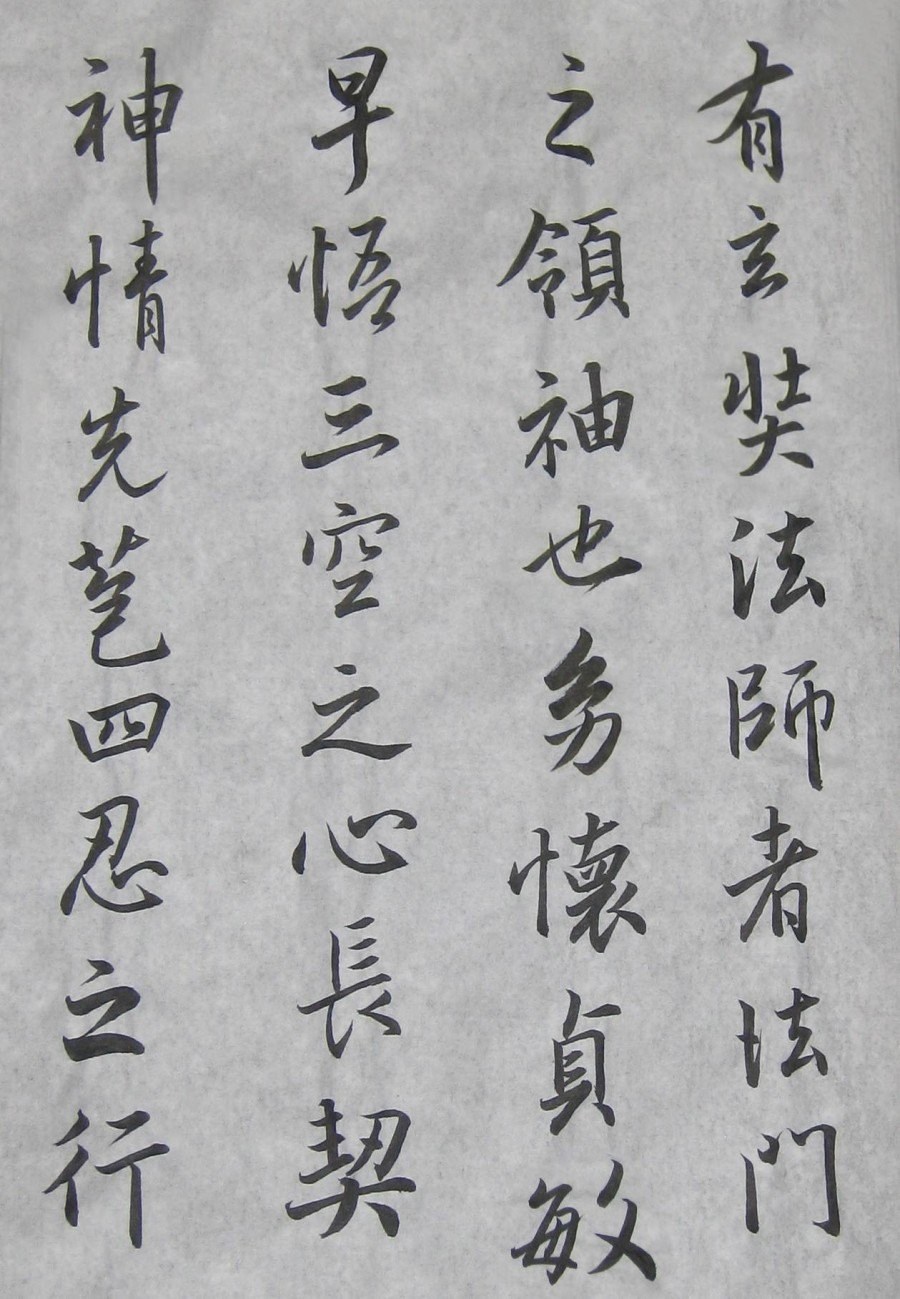 有玄奘法師者法門
之領袖也幼懷貞敏
早悟三空之心長契
神情先苞四忍之行